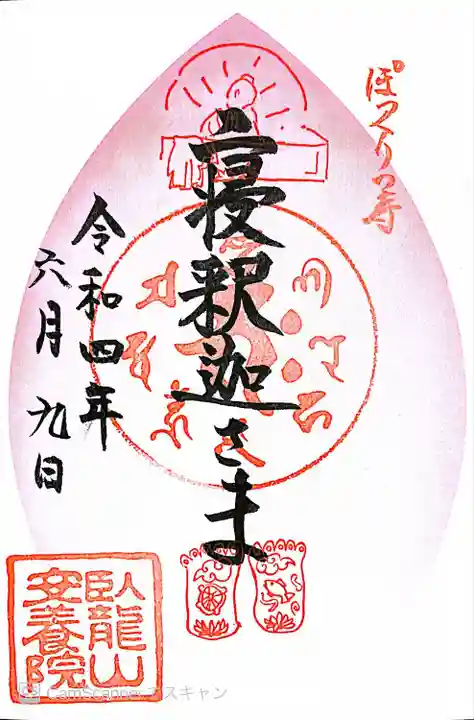 ぽっくり寺
寝釈迦さま
令和四年
六月九日
臥龍山
安養院
CamScannerでスキャン